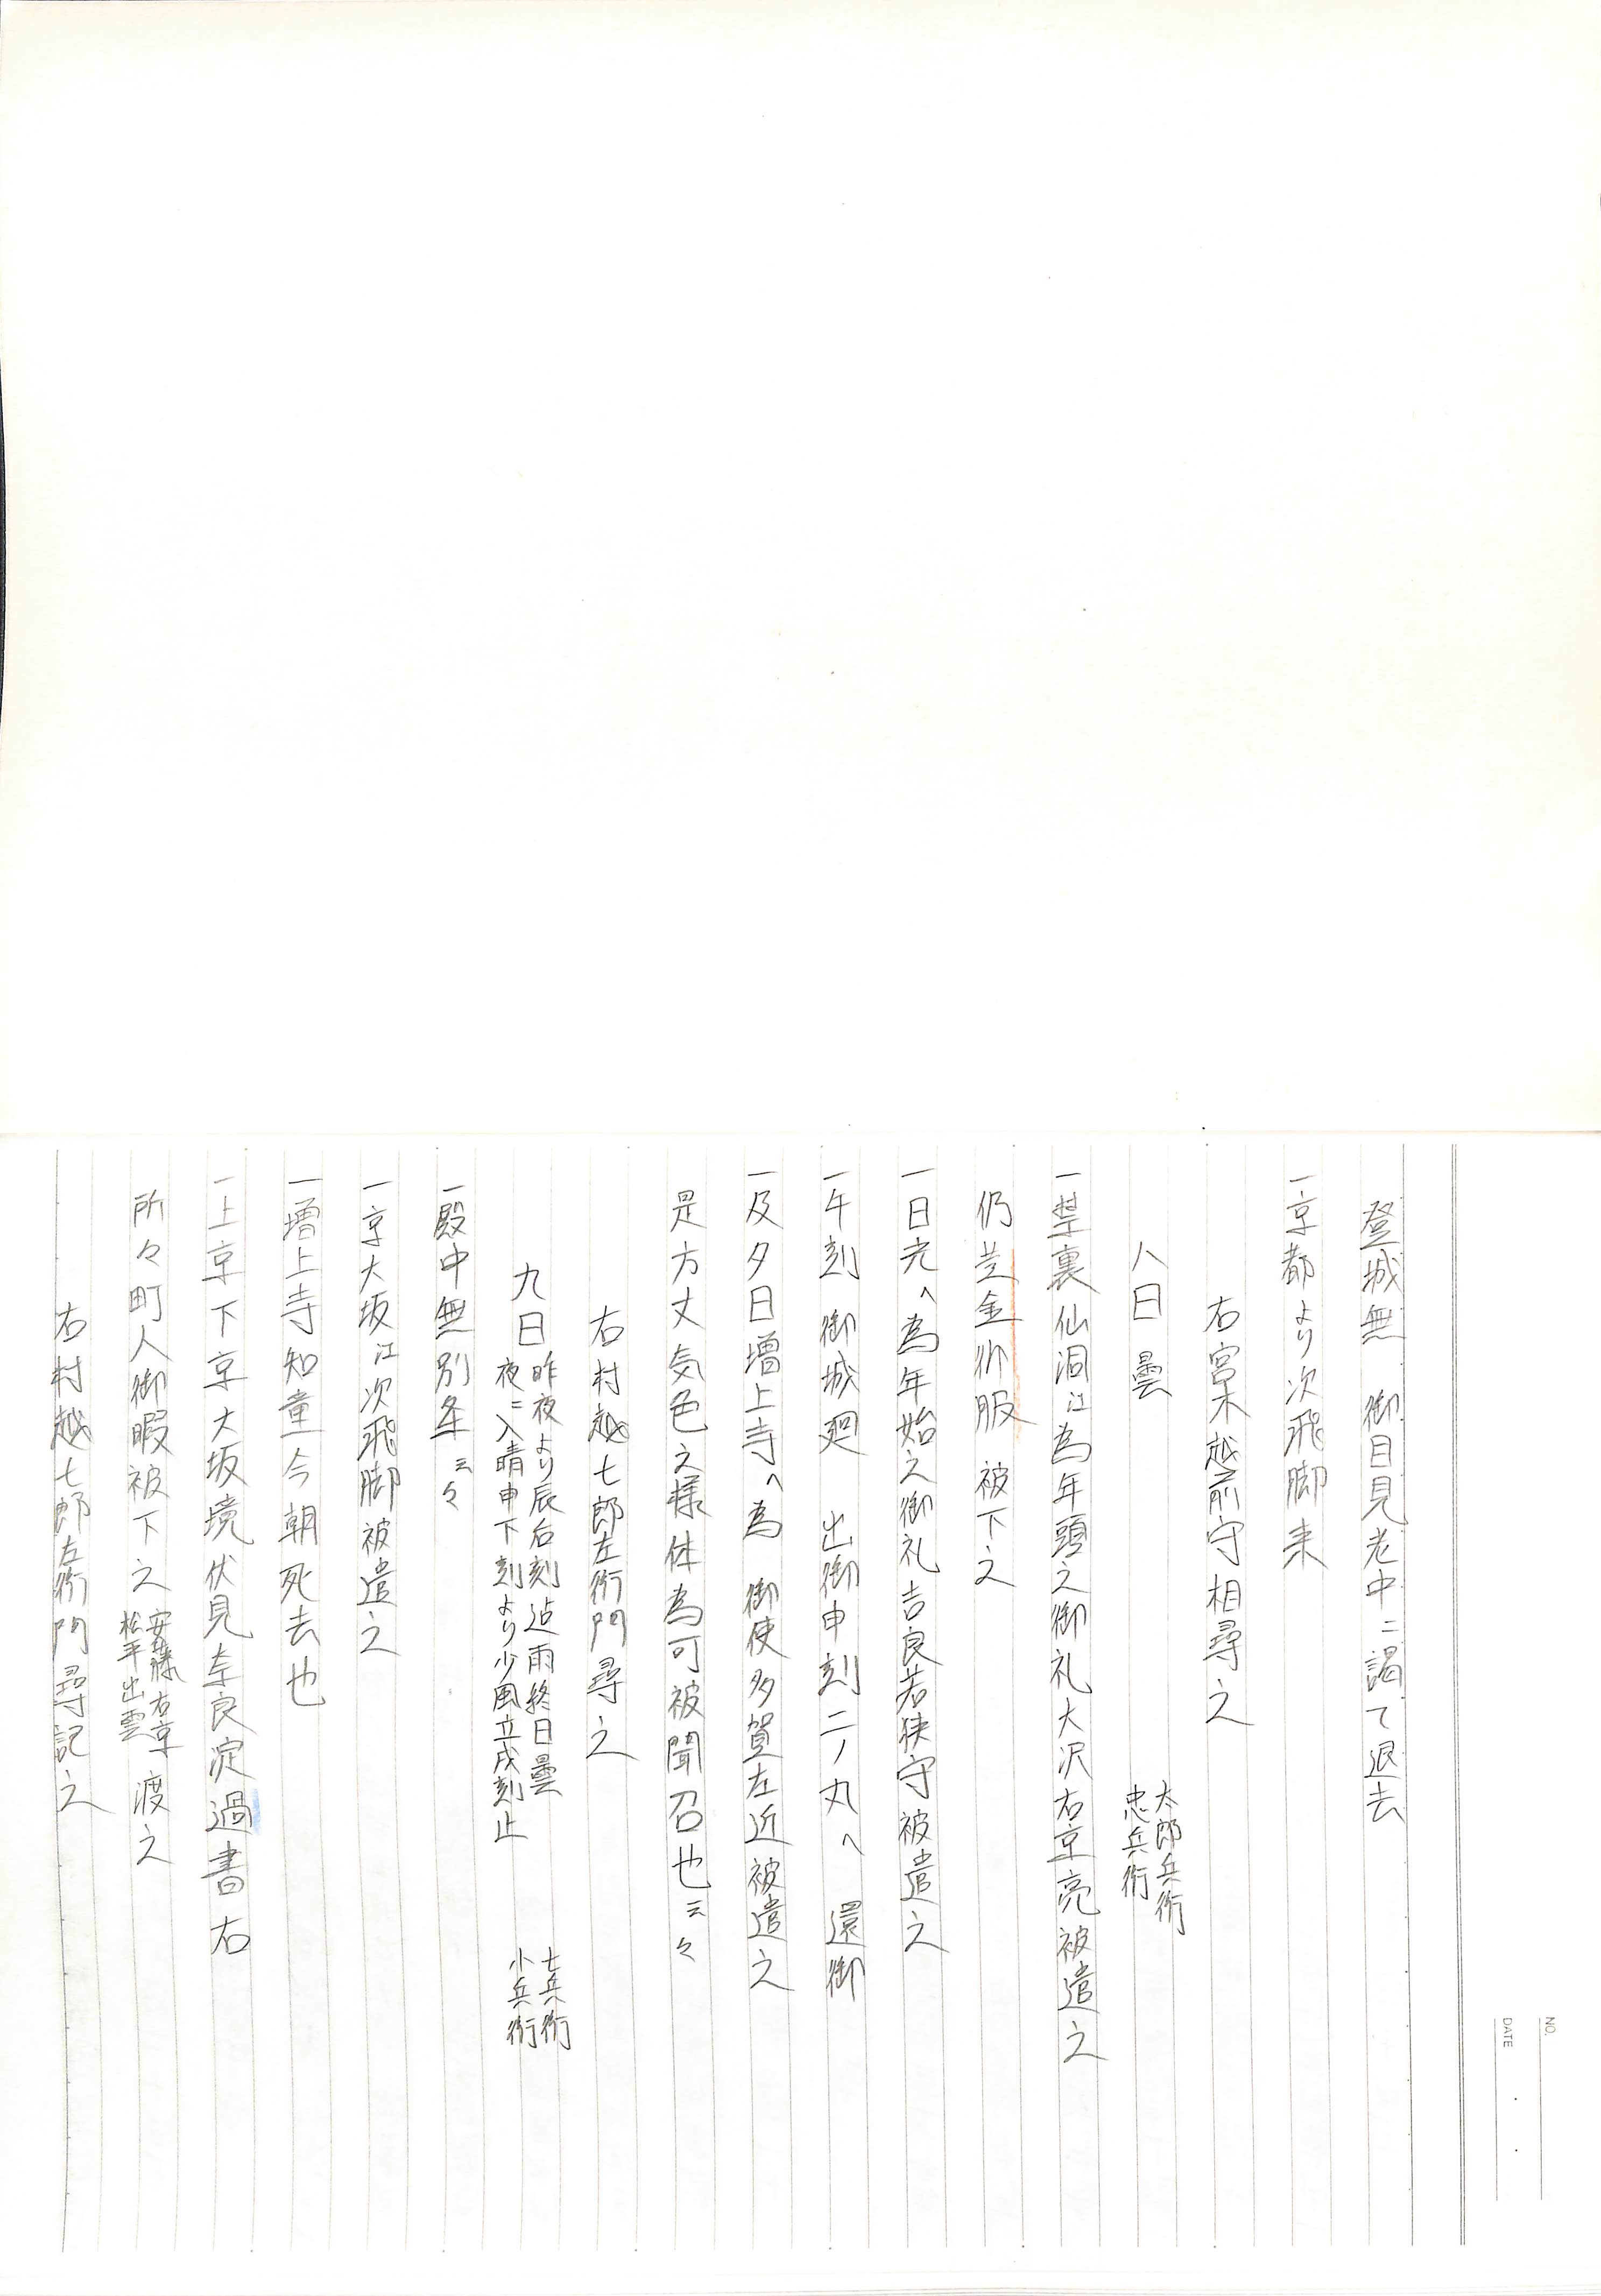 登城無　御目見老中ニ謁て退去
一京都より次飛脚来
右宮木越前守相尋之
八日　曇　太郎兵衛
忠兵衛
一禁裏仙洞江為年頭之御礼大沢右京亮被遣之
仍芝金御服　被下之
一日光へ為年始之御礼吉良若狭守被遣之
一午刻　御城廻　出御申刻二ノ丸へ　還御
一及夕日増上寺へ為　御使多賀左近被遣之
是方丈気色之様体為可被聞召也云々
右村越七郎左衛門尋之
九日　昨夜より辰后刻迠雨終日曇　七兵衛
夜ニ入晴申下刻より少風立戌刻止　小兵衛
一殿中無別条云々
一京大坂江次飛脚被遣之
一増上寺知童今朝死去也
一上京下京大坂境伏見奈良淀過書右
所々町人御暇被下之　安藤右京　渡之
松平出雲
右村越七郎左衛門尋記之
NO.
DATE